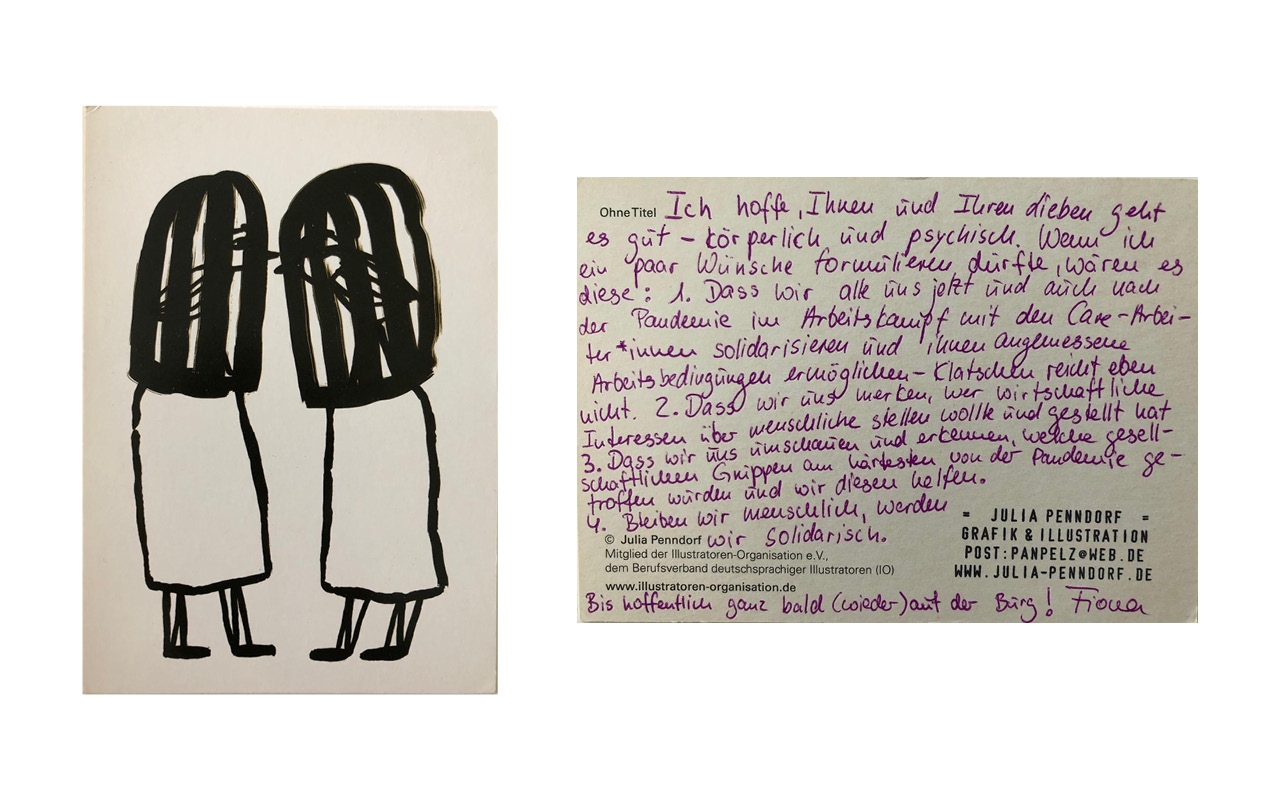 Ohne Titel Ich hoffe, Ihnen und Ihren Lieben geht
es gut – körperlich und psychisch. Wenn ich
ein paar Wünsche formulieren dürfte, wären es
diese: 1. Dass wir alle uns jetzt und auch nach
der Pandemie im Arbeitskampf mit den Care-Arbei-
ter*innen solidarisieren und ihnen angemessene
Arbeitsbedingungen ermöglichen – Klatschen reicht eben
nicht. 2. Dass wir uns merken, wer wirtschaftliche
Interessen über menschliche stellen wollte und gestellt hat
3. Dass wir uns umschauen und erkennen, welche gesell-
schaftlichen Gruppen am härtesten von der Pandemie ge-
troffen wurden und wir diesen helfen.
4. Bleiben wir menschlich, werden
wir solidarisch.
© Julia Penndorf
Mitglied der Illustratoren-Organisation e.V.,
dem Berufsverband deutschsprachiger Illustratoren (IO)
www.illustratoren-organisation.de
= JULIA PENNDORF =
GRAFIK & ILLUSTRATION
POST: PANPELZ@WEB.DE
WWW.JULIA-PENNDORF.DE
Bis hoffentlich ganz bald (wieder) auf der Burg! Fiona